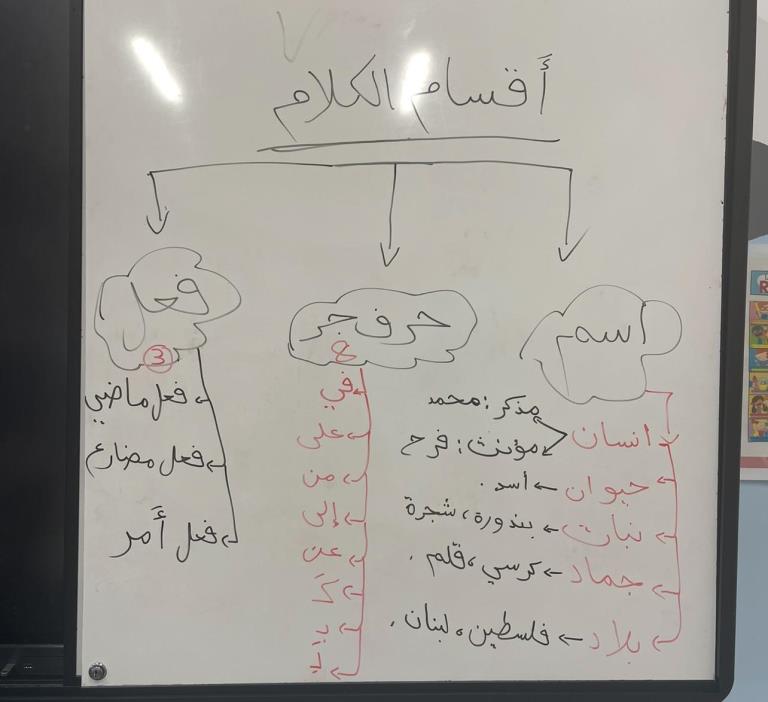 أقسام الكلام
اسم
انسان
مذكر: محمد
مؤنث: فرح
حيوان ← أسد.
نبات ← بندورة، شجرة
جماد ← كرسي، قلم.
بلاد ← فلسطين، لبنان.
حرف جر
8
في
على
من
إلى
عن
كَ
بـ
فعل
3
فعل ماضي
فعل مضارع
فعل أَمر